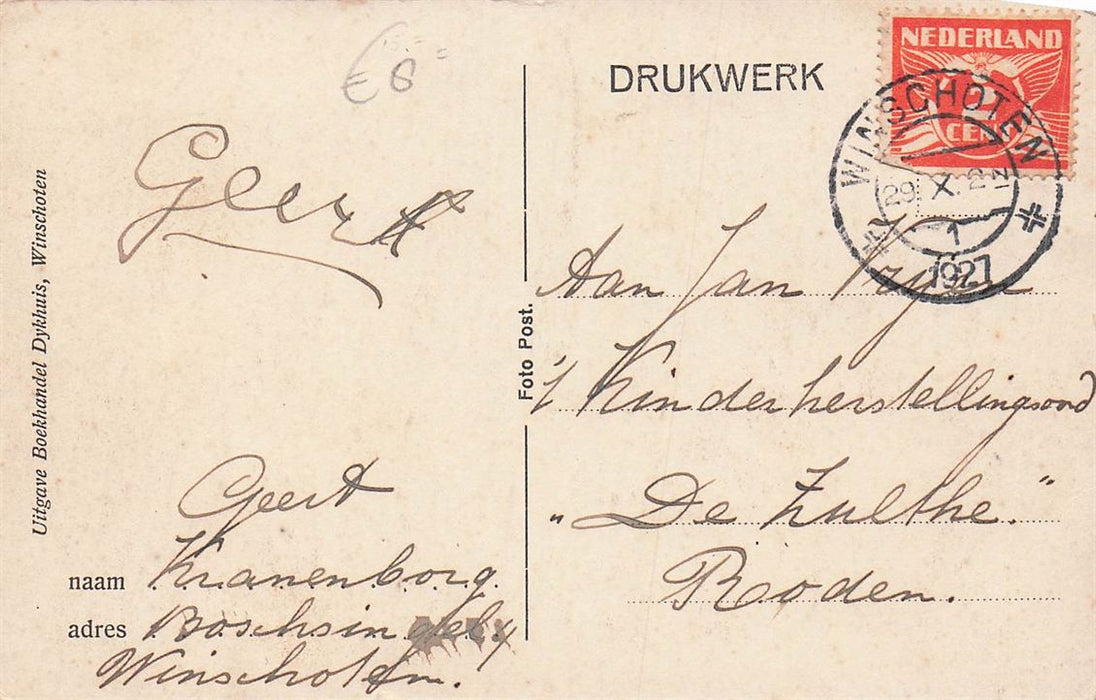 € 8
Geert
Uitgave Boekhandel Dykhuis, Winschoten
Geert
naam Kranenborg.
adres Boschsingel 4
Winschoten.
Foto Post.
DRUKWERK
NEDERLAND
2
CENT
WINSCHOTEN
29 X. 27
1
1927
Aan Jan
't Kinderherstellingsoord
„De Zulthe."
Roden.